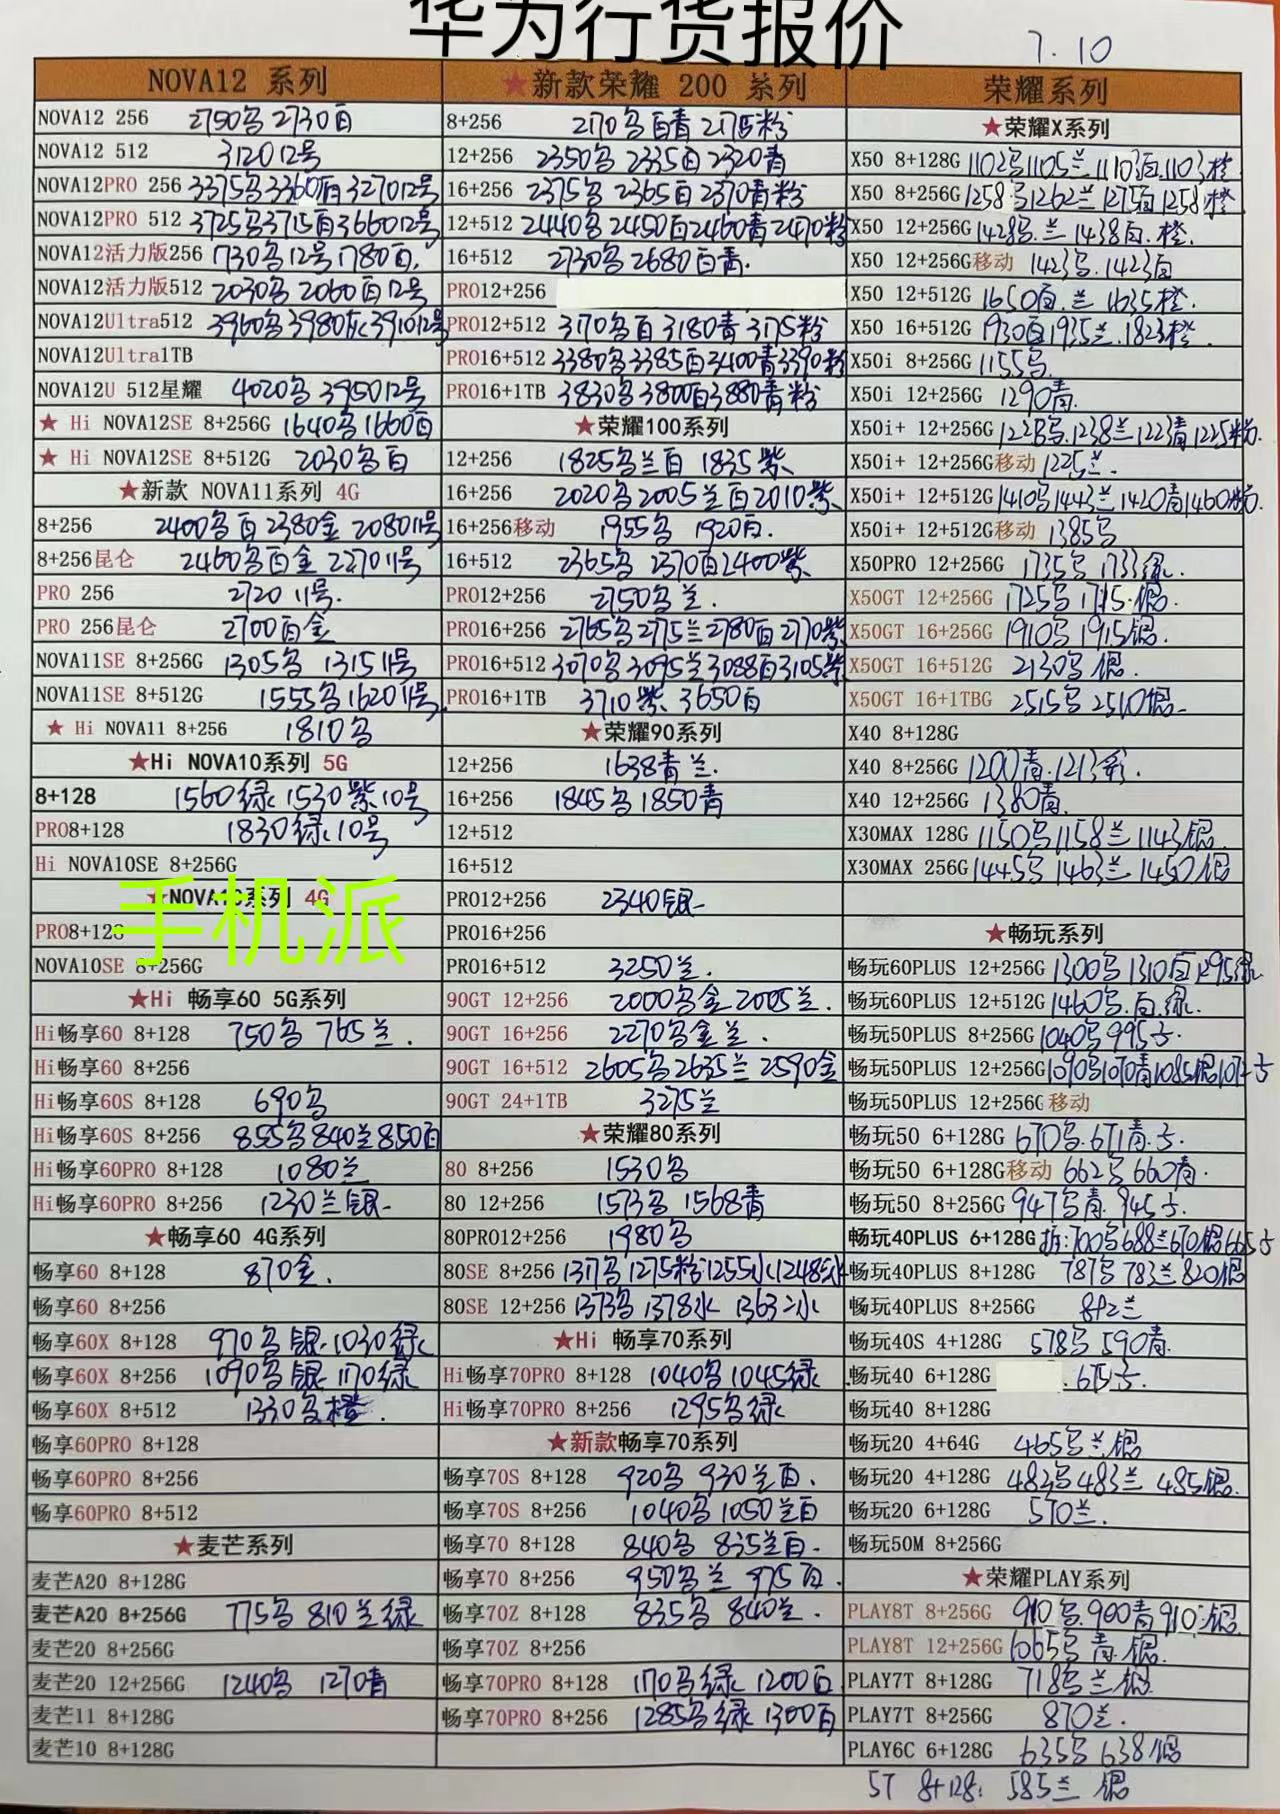 华为行货报价
7.10
NOVA12 系列
NOVA12 256 2750乌 2730白
NOVA12 512 3120 12号
NOVA12PRO 256 3375乌 3360白 3270 12号
NOVA12PRO 512 3725乌 3715白 3660 12号
NOVA12活力版256 1730乌 12号 1780白.
NOVA12活力版512 2030乌 2060白 12号
NOVA12Ultra512 3960乌 3980灰 3910 12号
NOVA12Ultra1TB
NOVA12U 512星耀 4020乌 3950 12号
★ Hi NOVA12SE 8+256G 1640乌 1660白
★ Hi NOVA12SE 8+512G 2030乌白
★新款 NOVA11系列 4G
8+256 2400乌白 2380金 2080 11号
8+256昆仑 2460乌白金 2270 11号
PRO 256 2720 11号.
PRO 256昆仑 2700白金
NOVA11SE 8+256G 1305乌 1315 11号
NOVA11SE 8+512G 1555乌 1620 11号
★ Hi NOVA11 8+256 1810乌
★Hi NOVA10系列 5G
8+128 1560绿 1530紫.10号
PRO8+128 1830绿.10号
Hi NOVA10SE 8+256G
手机派
★NOVA10系列 4G
PRO8+128
NOVA10SE 8+256G
★Hi 畅享60 5G系列
Hi畅享60 8+128 750乌 765兰.
Hi畅享60 8+256
Hi畅享60S 8+128 690乌
Hi畅享60S 8+256 855乌 840兰 850白
Hi畅享60PRO 8+128 1080兰
Hi畅享60PRO 8+256 1230兰银
★畅享60 4G系列
畅享60 8+128 870金.
畅享60 8+256
畅享60X 8+128 970乌银.1030绿
畅享60X 8+256 1090乌银 1170绿
畅享60X 8+512 1330乌橙.
畅享60PRO 8+128
畅享60PRO 8+256
畅享60PRO 8+512
★麦芒系列
麦芒A20 8+128G
麦芒A20 8+256G 775乌 810兰绿
麦芒20 8+256G
麦芒20 12+256G 1240乌 1270青
麦芒11 8+128G
麦芒10 8+128G
★新款荣耀 200 系列
8+256 2170乌白青 2175粉
12+256 2350乌 2335白 2320青
16+256 2375乌 2365白 2370青粉
12+512 2440乌 2450白 2460青 2470粉
16+512 2730乌 2680白青.
PRO12+256
PRO12+512 3170乌白 3180青 3175粉
PRO16+512 3380乌 3385白 3400青 3390粉
PRO16+1TB 3830乌 3800白 3880青粉
★荣耀100系列
12+256 1825乌兰白 1835紫
16+256 2020乌 2005兰白 2010紫
16+256移动 1955乌 1920白.
16+512 2365乌 2370白 2400紫
PRO12+256 2750乌兰.
PRO16+256 2765乌 2775兰 2780白 2770紫
PRO16+512 3070乌 3095兰 3088白 3105紫
PRO16+1TB 3710紫 3650白
★荣耀90系列
12+256 1638青兰.
16+256 1845乌 1850青
12+512
16+512
PRO12+256 2340银
PRO16+256
PRO16+512 3250兰.
90GT 12+256 2000乌金 2005兰.
90GT 16+256 2270乌金兰.
90GT 16+512 2605乌 2635兰 2590金
90GT 24+1TB 3275兰
★荣耀80系列
80 8+256 1530乌
80 12+256 1573乌 1568青
80PRO12+256 1980乌
80SE 8+256 1317乌 1275粉 1255水
80SE 12+256 1373乌 1378水
★Hi 畅享70系列
Hi畅享70PRO 8+128 1040乌 1045绿
Hi畅享70PRO 8+256 1295乌绿
★新款畅享70系列
畅享70S 8+128 920乌 930兰白.
畅享70S 8+256 1040乌 1050兰白
畅享70 8+128 840乌 835兰白.
畅享70 8+256 950乌兰 975白.
畅享70Z 8+128 835乌 840兰.
畅享70Z 8+256
畅享70PRO 8+128 1170乌绿 1200白
畅享70PRO 8+256 1285乌绿 1300白
荣耀系列
★荣耀X系列
X50 8+128G 1102乌 1105兰 1103白.1103橙
X50 8+256G 1258乌 1262兰 1275白 1258橙
X50 12+256G 1428乌.兰 1438白.橙.
X50 12+256G移动 1423乌.1423白
X50 12+512G 1650白.兰 1635橙.
X50 16+512G 1930白 1935兰.1823橙.
X50i 8+256G 1155乌
X50i 12+256G 1290青.
X50i+ 12+256G 1228乌.1238兰 1223青 1225粉.
X50i+ 12+256G移动 1225兰.
X50i+ 12+512G 1410乌 1443兰 1420青 1460粉.
X50i+ 12+512G移动 1385乌
X50PRO 12+256G 1735乌 1733绿.
X50GT 12+256G 1725乌 1715.银.
X50GT 16+256G 1910乌 1915银.
X50GT 16+512G 2130乌 银.
X50GT 16+1TBG 2515乌 2510银
X40 8+128G
X40 8+256G 1200青.1213彩.
X40 12+256G 1380青.
X30MAX 128G 1150乌 1158兰 1143银.
X30MAX 256G 1445乌 1463兰 1450银
★畅玩系列
畅玩60PLUS 12+256G 1300乌 1310白 1295绿
畅玩60PLUS 12+512G 1460乌.白.绿.
畅玩50PLUS 8+256G 1040乌 995
畅玩50PLUS 12+256G 1090乌 1070青 1085银
畅玩50PLUS 12+256G 移动
畅玩50 6+128G 670乌.671青.
畅玩50 6+128G移动 662乌 660青.
畅玩50 8+256G 947乌青. 945
畅玩40PLUS 6+128G 拆:700乌 688兰 670银 665
畅玩40PLUS 8+128G 787乌 783兰 820银
畅玩40PLUS 8+256G 842兰
畅玩40S 4+128G 578乌 590青.
畅玩40 6+128G 675
畅玩40 8+128G
畅玩20 4+64G 465乌兰银
畅玩20 4+128G 482乌 483兰 485银.
畅玩20 6+128G 570兰.
畅玩50M 8+256G
★荣耀PLAY系列
PLAY8T 8+256G 910乌.900青 910银
PLAY8T 12+256G 1065乌 青.银.
PLAY7T 8+128G 718乌兰银
PLAY7T 8+256G 870兰.
PLAY6C 6+128G 635乌 638银
5T 8+128: 585兰 银